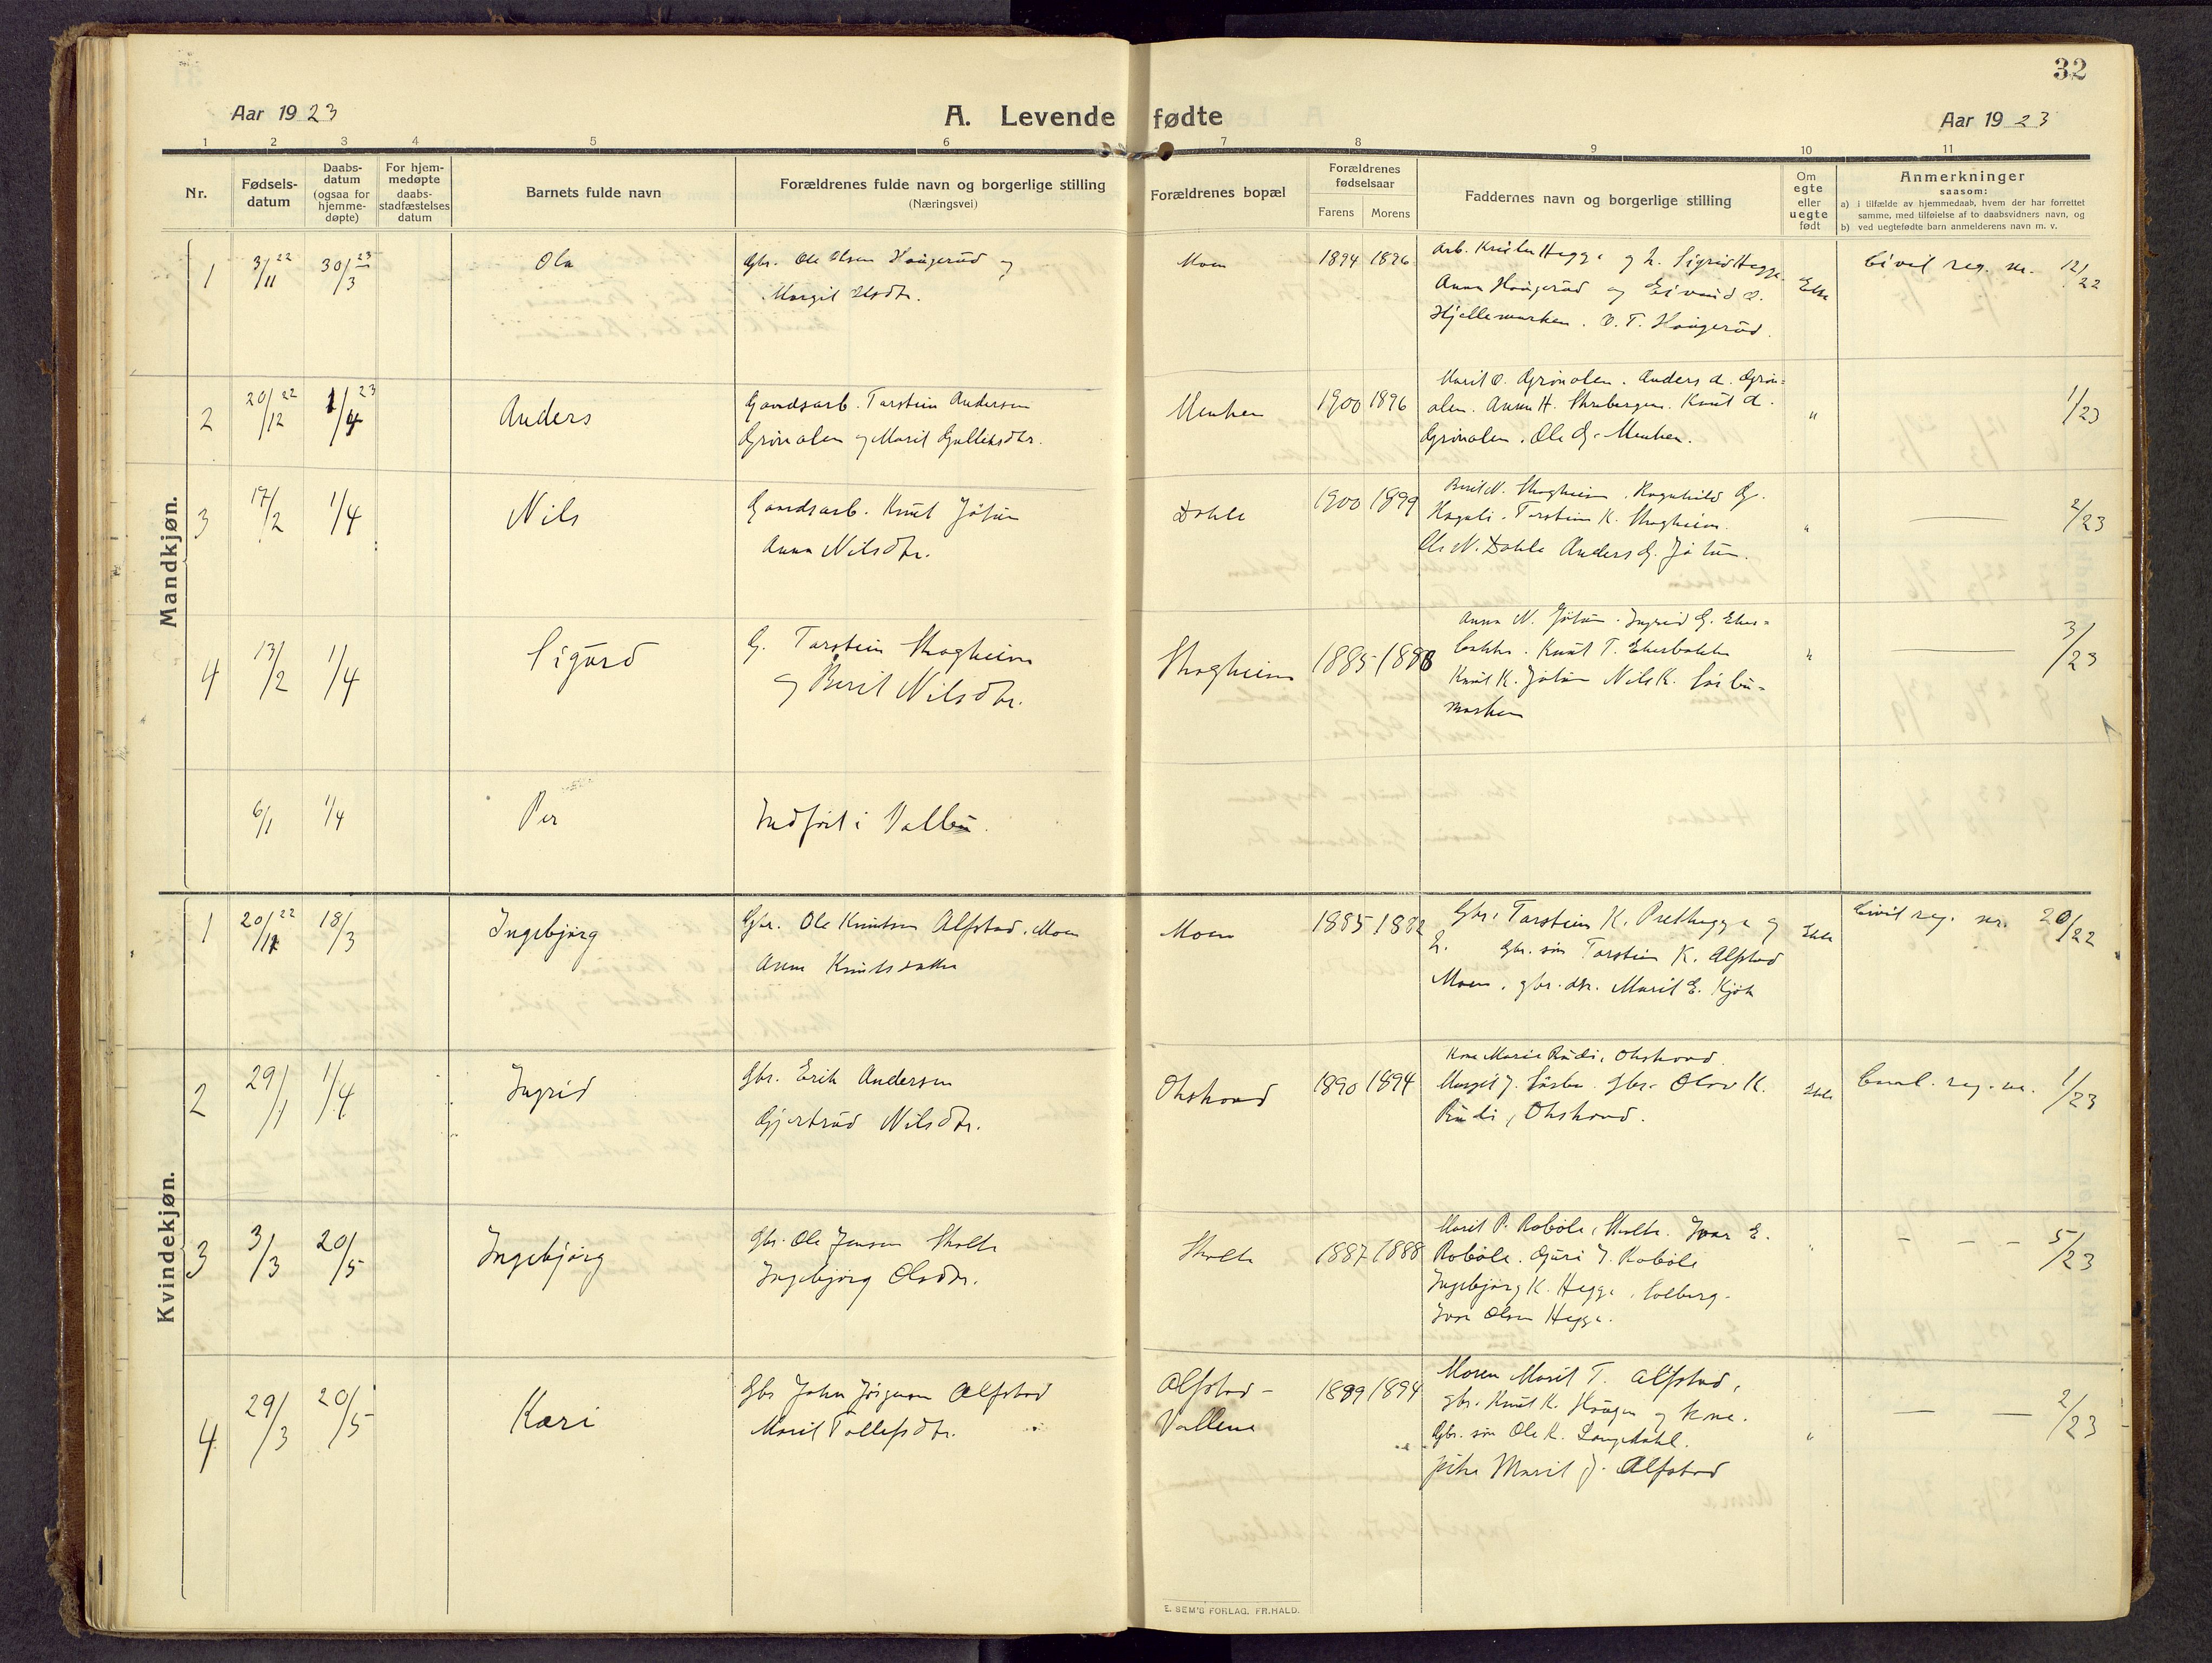 32
Aar 1923
A. Levende fødte
Aar 1923
1 2 3 4 5 6 7 8 9 10 11
Nr.
Fødsels-
datum
Daabs-
datum
(ogsaa for
hjemme-
døpte)
For hjem-
medøpte
daabs-
stadfæstelses
datum
Barnets fulde navn
Forældrenes fulde navn og borgerlige stilling
(Næringsvei)
Forældrenes bopæl
Forældrenes
fødselsaar
Farens Morens
Faddernes navn og borgerlige stilling
Om
egte
eller
uegte
født
Anmerkninger
saasom:
a) i tilfælde av hjemmedaab, hvem der har forrettet
samme, med tilføielse af to daabsvidners navn, og
b) ved uegtefødte barn anmelderens navn m. v.
Mandkjøn.
1 3/11 22 30/3 23 Ola
Gbr. Ole Olsen Haugerud og
Margit Olsdtr.
Moen 1894 1896
Arb. Kristen Hegge og h. Sigrid Hegge
Anna Haugerud og Eivind O.
Hjellemarken. O. T. Haugerud.
Ekte
Civil reg. nr. 12/22
2 20/12 22 1/4 23 Anders
Gaardsarb. Torstein Andersen
Grinolen og Marit Gulleiksdtr.
1900 1896
Marit O. Grinolen. Anders A. Grin-
olen. Anna H. Knut A.
Grinolen. Ole G.
" 1/23
3 17/2 1/4 Nils
Gaardsarb. Knut Jøtun
Anna Nilsdtr.
Dahle 1900 1899
Berit N. Skogheim. Ragnhild G.
Torstein K. Skogheim.
Ole N. Dahle Anders G. Jøtun.
" — 2/23
4 13/2 1/4 Sigurd
G. Torstein Skogheim
og Berit Nilsdtr.
Skogheim 1885 1888
Anna N. Jøtun. Ingrid G. Eker-
bakke. Knut T. Ekerbakke
Knut K. Jøtun Nils K.
marken
" — 3/23
6/1 1/4 Per
Indført i Vollbu.
Kvindekjøn.
1 20/11 22 18/3 Ingebjørg
Gbr. Ole Knutsen Alfstad. Moen
Anna Knutsdatter
Moen 1885 1882
Gbr. Torstein K. Prethegge og
h. Gbr. søn Torstein K. Alfstad
Moen, gbr. dtr. Marit E. Kjøk
Ekte
Civil reg. nr. 20/22
2 29/1 1/4 Ingrid
Gbr. Erik Andersen
Gjertrud Nilsdtr.
Okshovd 1890 1894
Kone Marie Rudi, Okshovd.
Margit J. Gbr. Olav K.
Rudi, Okshovd.
Ekte
reg. nr. 1/23
3 3/3 20/5 Ingebjørg
Gbr. Ole Jensen Skolte
Ingebjørg Olsdtr.
Skolte 1887 1888
Marit P. Robøle, Skolte. Ivar E.
Robøle. Guri J. Robøle
Ingebjørg K. Hegge, Solberg.
Ivar Olsen Hegge.
" — — — 5/23
4 29/3 20/5 Kari
Gbr John Jørgensen Alfstad
Marit Tollefsdtr.
Alfstad-
Vollene
1899 1894
Moren Marit T. Alfstad,
gbr. Knut K. Haugen og kone.
Gbr. søn Ole K. Langedahl.
pike Marit J. Alfstad
" — — 2/23
E. SEM'S FORLAG, FR.HALD.